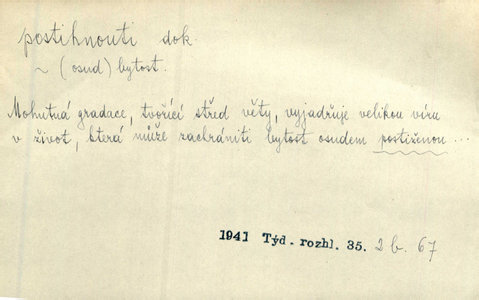 postihnouti dok.
~ (osud) bytost.
Mohutná gradace, tvořící střed věty, vyjadřuje velikou víru
v život, která může zachrániti bytost osudem postiženou ...
1941 Týd. rozhl. 35. 2 b. 67